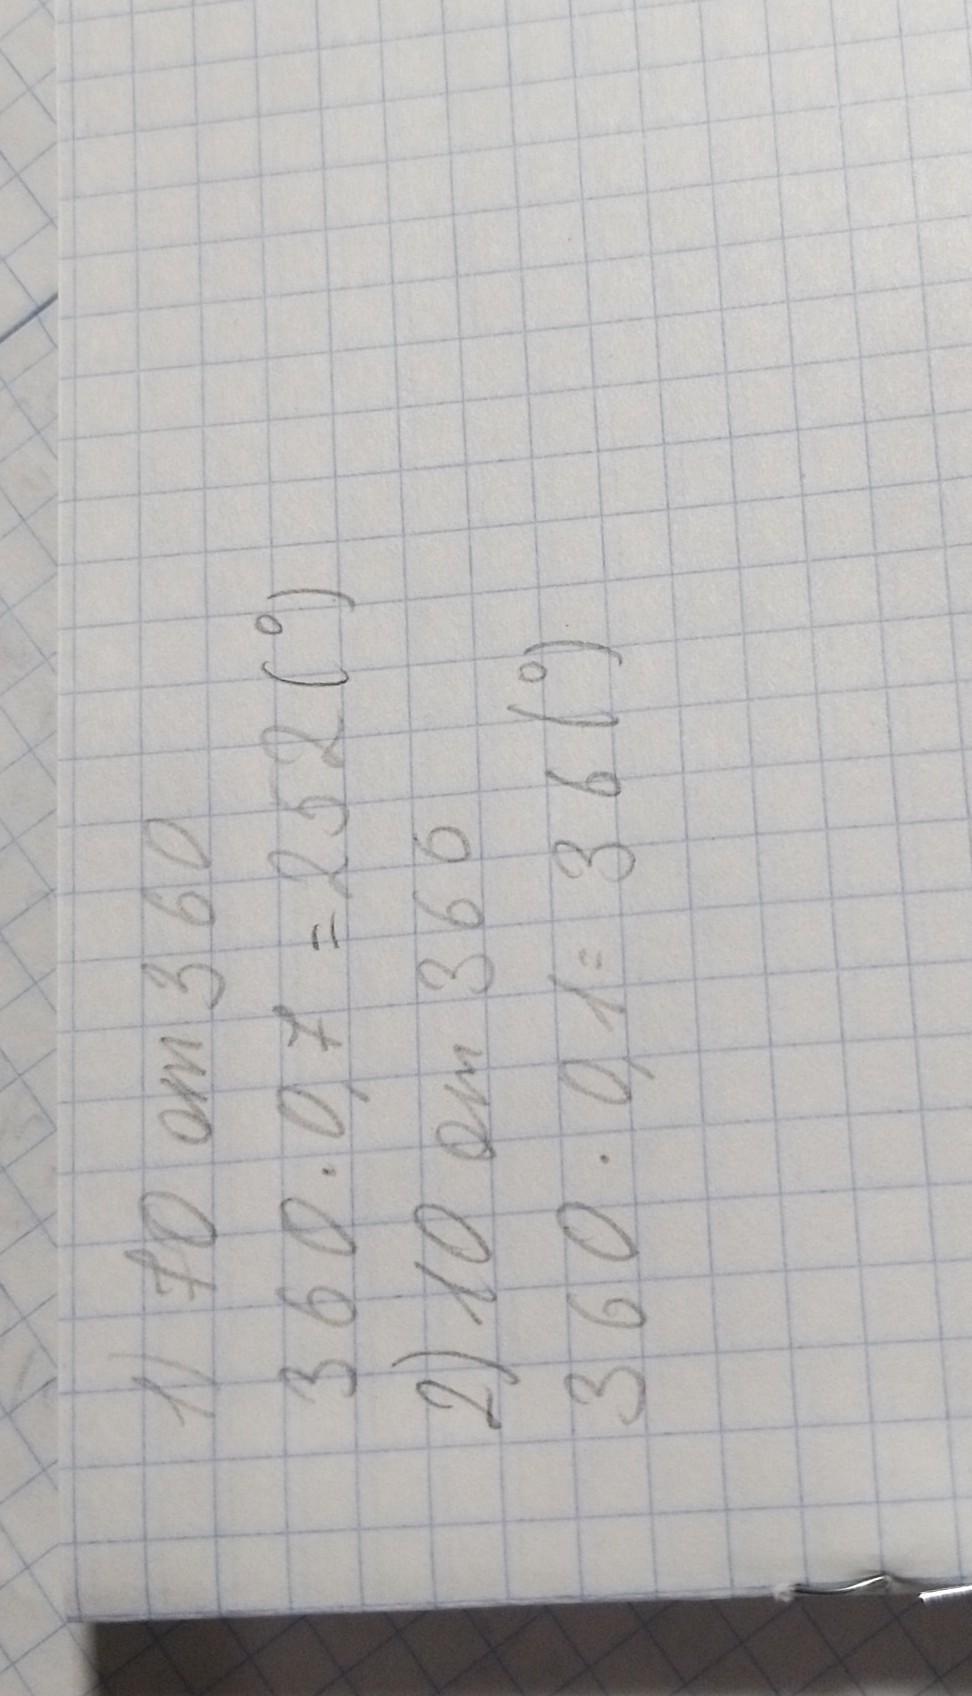 1) 70 от 360
360 · 0,7 = 252 (°)
2) 10 от 360
360 · 0,1 = 36 (°)